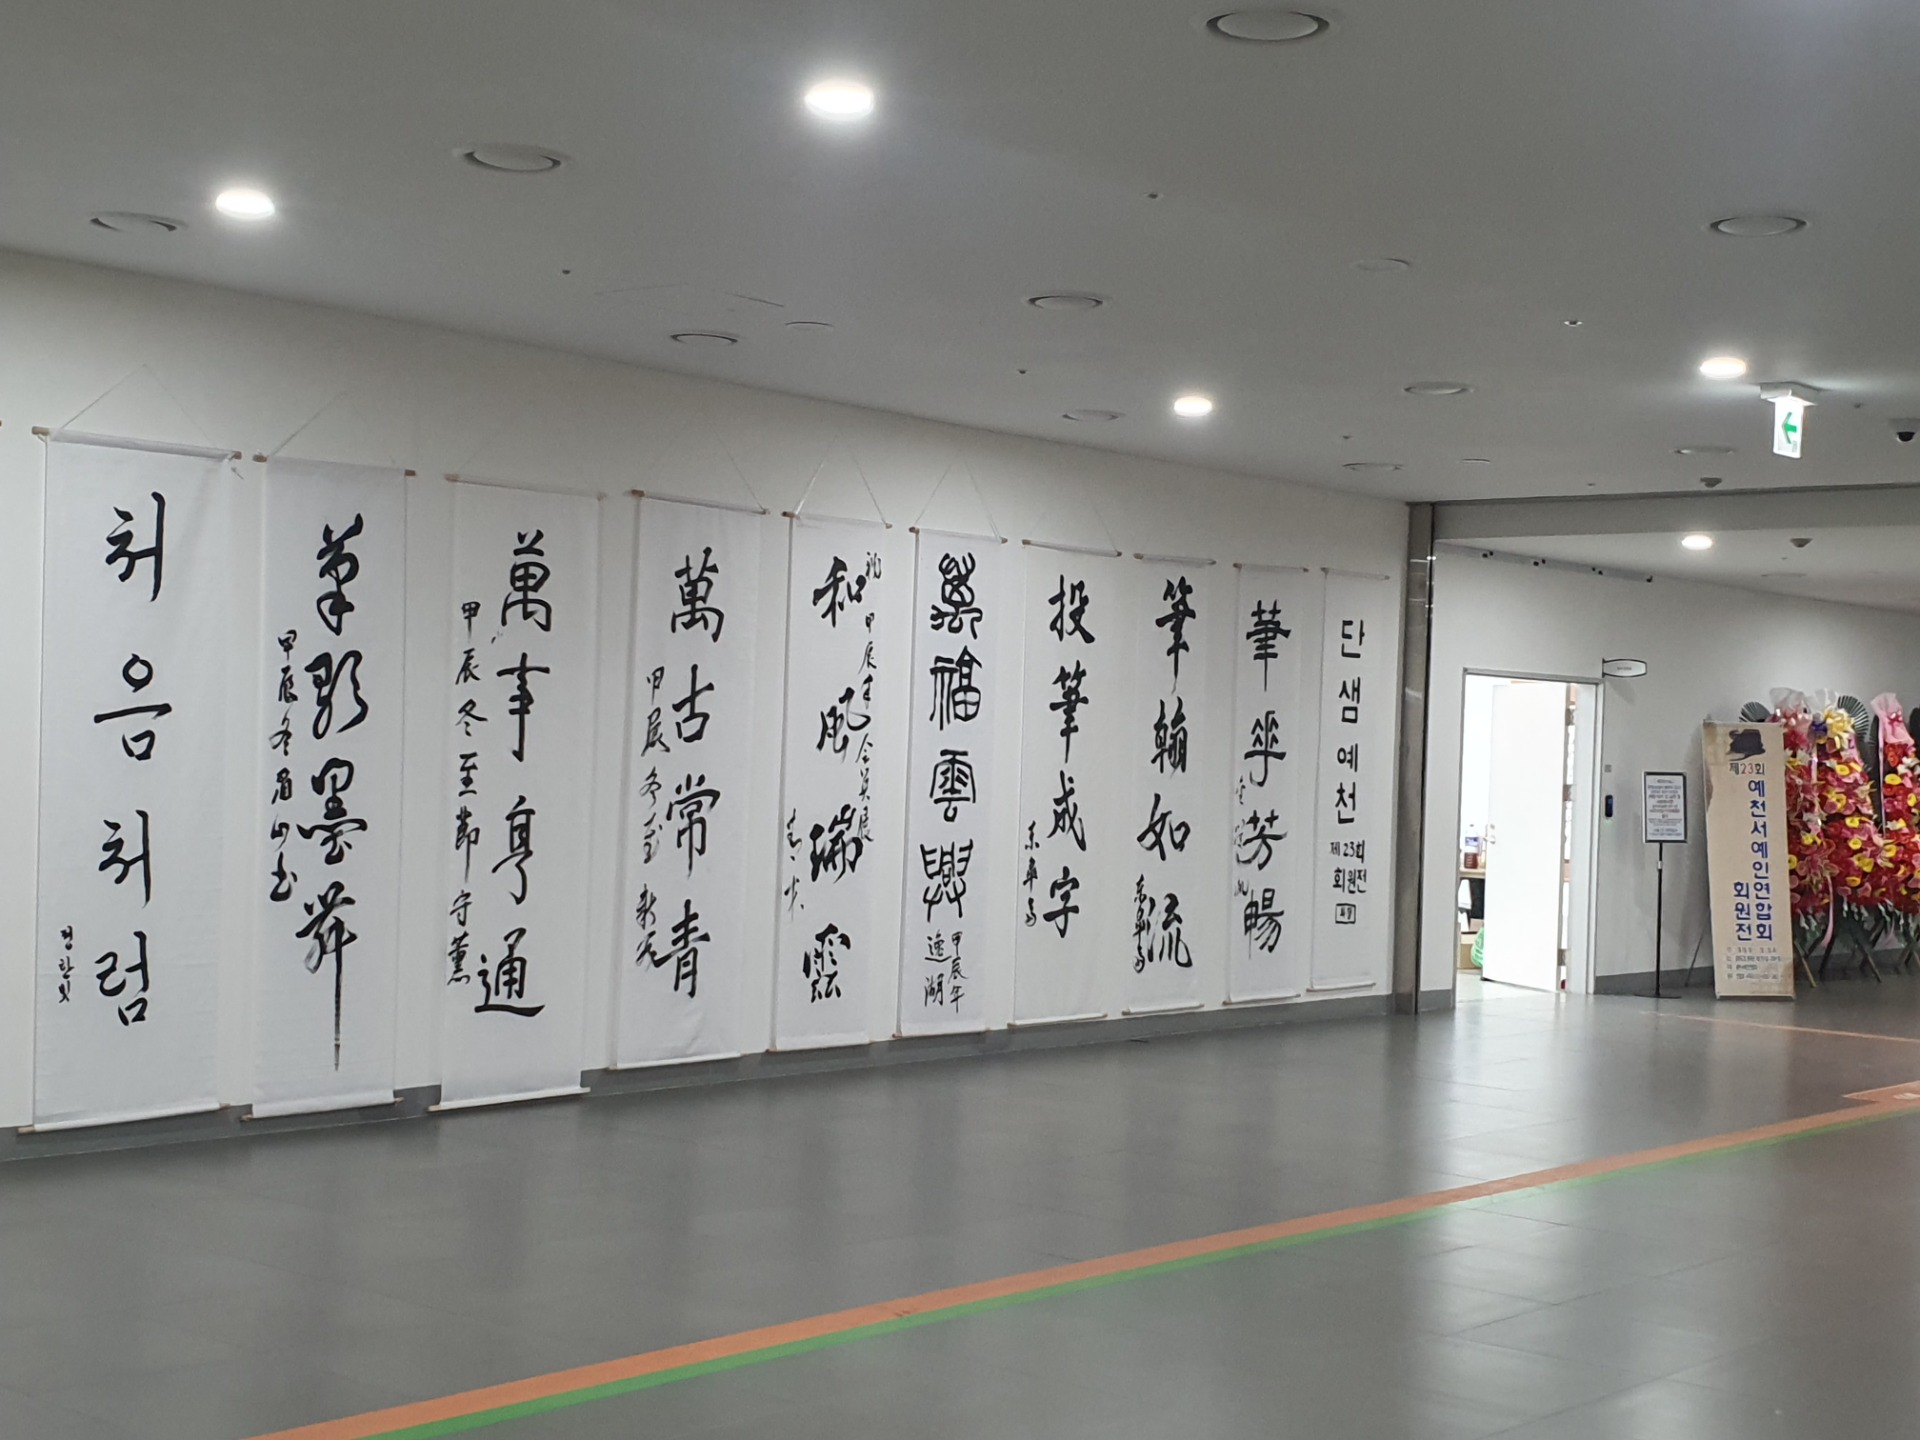 처음처럼
筆歌墨舞
甲辰冬眉山書
萬事亨通
甲辰冬至節 守薰
萬古常青
甲辰冬至
和風瑞雲
祝 甲辰年会員展
萬福雲興
甲辰年
逸湖
投筆成字
筆翰如流
華華芳暢
단샘예천
제23회
회원전
제23회
예천서예인연합회
회원전